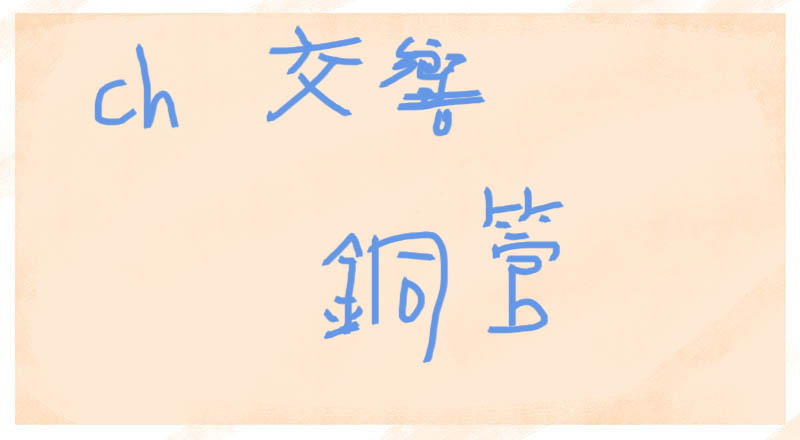 ch 交響
銅管